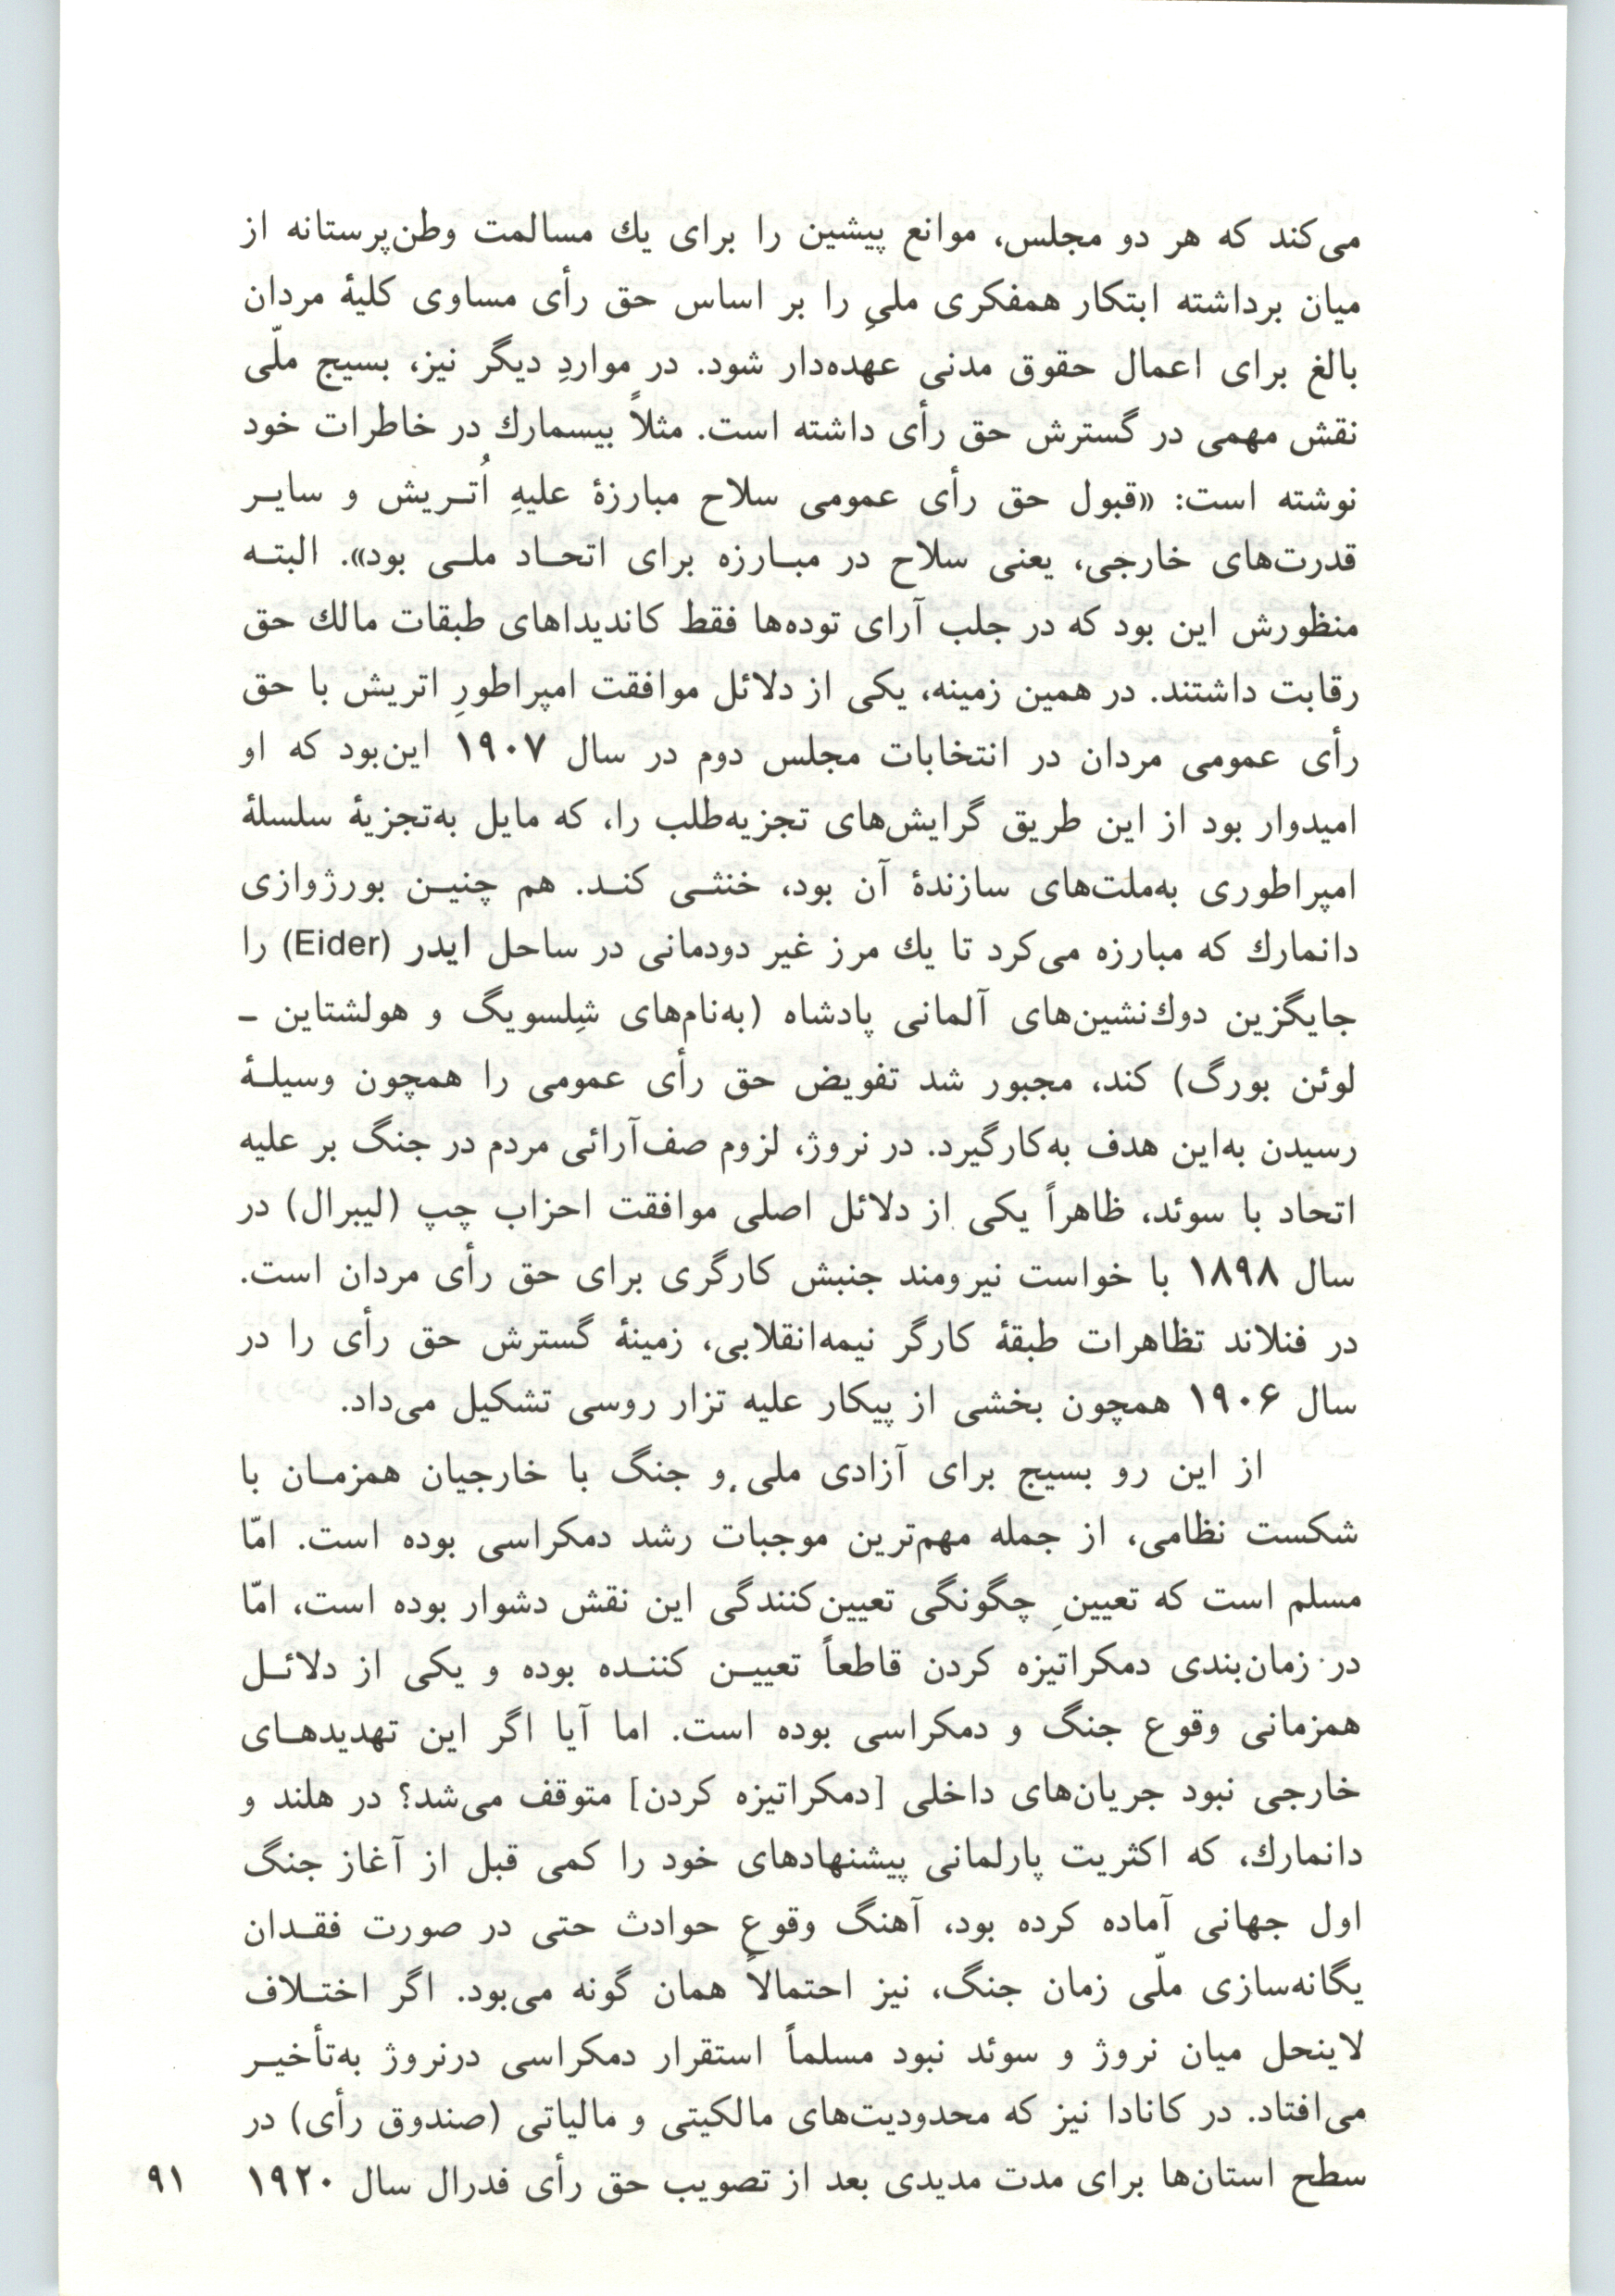 می‌کند که هر دو مجلس، موانع پیشین را برای یك مسالمت وطن‌پرستانه از
میان برداشته ابتکار همفکری ملیِ را بر اساس حق رأی مساوی کلیهٔ مردان
بالغ برای اعمال حقوق مدنی عهده‌دار شود. در مواردِ دیگر نیز، بسیج ملّی
نقش مهمی در گسترش حق رأی داشته است. مثلاً بیسمارك در خاطرات خود
نوشته است: «قبول حق رأی عمومی سلاح مبارزهٔ علیهِ اُتـریش و سایـر
قدرت‌های خارجی، یعنی سلاح در مبـارزه برای اتحـاد ملـی بود». البتـه
منظورش این بود که در جلب آرای توده‌ها فقط کاندیداهای طبقات مالك حق
رقابت داشتند. در همین زمینه، یکی از دلائل موافقت امپراطورِ اتریش با حق
رأی عمومی مردان در انتخابات مجلس دوم در سال ۱۹۰۷ این‌بود که او
امیدوار بود از این طریق گرایش‌های تجزیه‌طلب را، که مایل به‌تجزیهٔ سلسلهٔ
امپراطوری به‌ملت‌های سازندهٔ آن بود، خنثـی کنـد. هم چنیـن بورژوازی
دانمارك که مبارزه می‌کرد تا یك مرز غیر دودمانی در ساحل ایدر (Eider) را
جایگزین دوك‌نشین‌های آلمانی پادشاه (به‌نام‌های شِلسویگ و هولشتاین ـ
لوئن بورگ) کند، مجبور شد تفویض حق رأی عمومی را همچون وسیلـهٔ
رسیدن به‌این هدف به‌کارگیرد. در نروژ، لزوم صف‌آرائی مردم در جنگ بر علیه
اتحاد با سوئد، ظاهراً یکی از دلائل اصلی موافقت احزاب چپ (لیبرال) در
سال ۱۸۹۸ با خواست نیرومند جنبش کارگری برای حق رأی مردان است.
در فنلاند تظاهرات طبقهٔ کارگر نیمه‌انقلابی، زمینهٔ گسترش حق رأی را در
سال ۱۹۰۶ همچون بخشی از پیکار علیه تزار روسی تشکیل می‌داد.
از این رو بسیج برای آزادی ملی و جنگ با خارجیان همزمـان با
شکست نظامی، از جمله مهم‌ترین موجبات رشد دمکراسی بوده است. امّا
مسلم است که تعیینِ چگونگی تعیین‌کنندگی این نقش دشوار بوده است، امّا
در زمان‌بندی دمکراتیزه کردن قاطعاً تعییـن کننـده بوده و یکی از دلائـل
همزمانی وقوع جنگ و دمکراسی بوده است. اما آیا اگر این تهدیدهـای
خارجی نبود جریان‌های داخلی [دمکراتیزه کردن] متوقف می‌شد؟ در هلند و
دانمارك، که اکثریت پارلمانی پیشنهادهای خود را کمی قبل از آغاز جنگ
اول جهانی آماده کرده بود، آهنگ وقوع حوادث حتی در صورت فقـدان
یگانه‌سازی ملّی زمان جنگ، نیز احتمالاً همان گونه می‌بود. اگر اختـلاف
لاینحل میان نروژ و سوئد نبود مسلماً استقرار دمکراسی درنروژ به‌تأخیـر
می‌افتاد. در کانادا نیز که محدودیت‌های مالکیتی و مالیاتی (صندوق رأی) در
سطح استان‌ها برای مدت مدیدی بعد از تصویب حق رأی فدرال سال ۱۹۲۰
۹۱